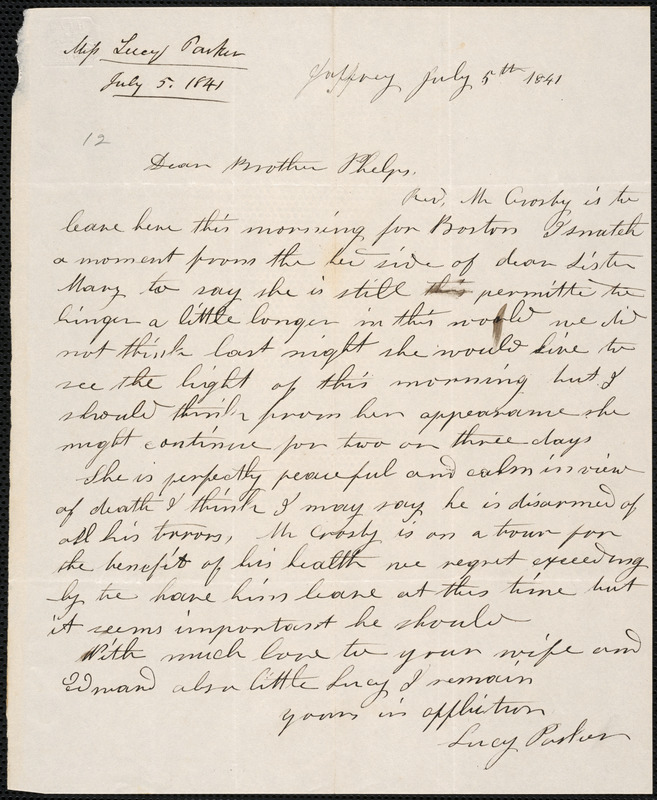 Miss Lucy Parker
July 5. 1841
Jaffrey July 5th 1841
12
Dear Brother Phelps.
Rev, Mr Crosby is to
leave here this morning for Boston I snatch
a moment from the bed side of dear Sister
Mary to say she is still this permitted to
linger a little longer in this world we did
not think last night she would live to
see the light of this morning but I
should think from her appearance she
might continue for two or three days
She is perfectly peaceful and calm in view
of death I think I may say he is disarmed of
all his terrors, Mr Crosby is on a tour for
the benefit of his health we regret exceeding
ly to have him leave at this time but
it seems important he should
With much love to your wife and
Edward also little Lucy I remain
yours in affliction
Lucy Parker